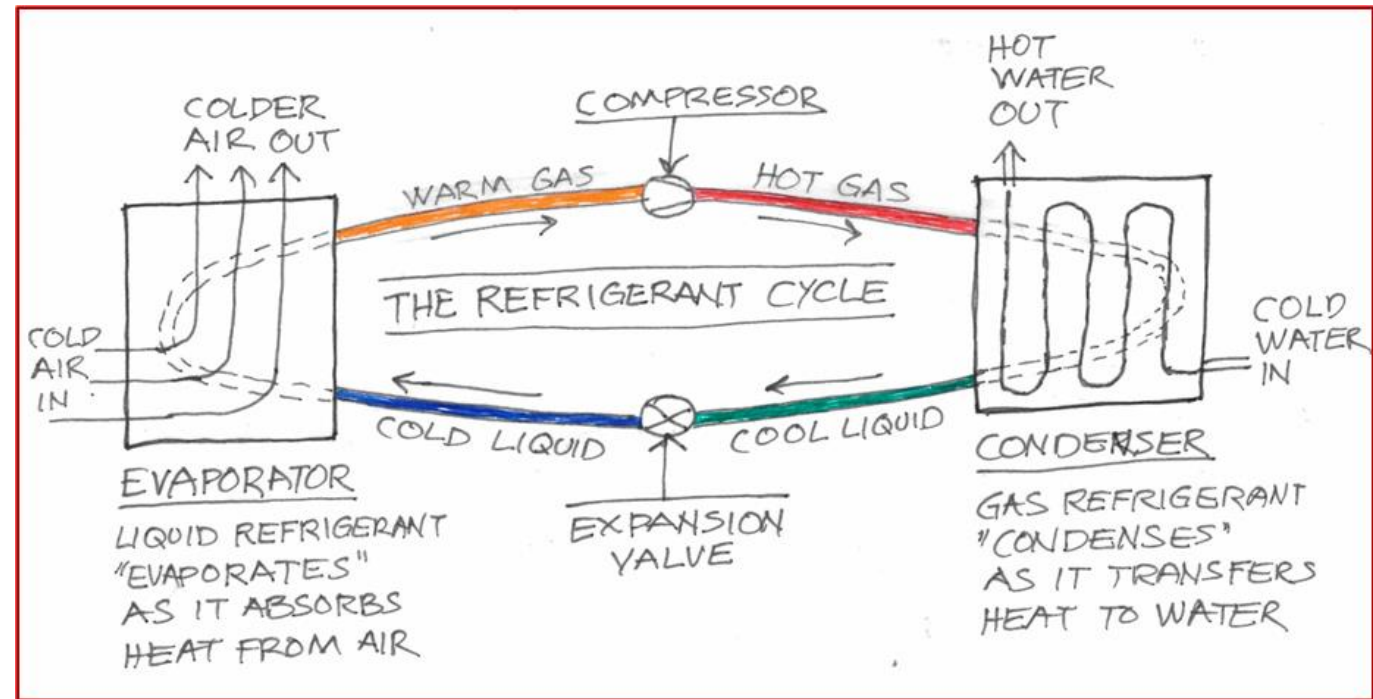 COLDER
AIR OUT
COMPRESSOR
HOT
WATER
OUT
WARM GAS
HOT GAS
THE REFRIGERANT CYCLE
COLD
AIR
IN
COLD
WATER
IN
COLD LIQUID
COOL LIQUID
EVAPORATOR
LIQUID REFRIGERANT
"EVAPORATES"
AS IT ABSORBS
HEAT FROM AIR
EXPANSION
VALVE
CONDENSER
GAS REFRIGERANT
"CONDENSES"
AS IT TRANSFERS
HEAT TO WATER